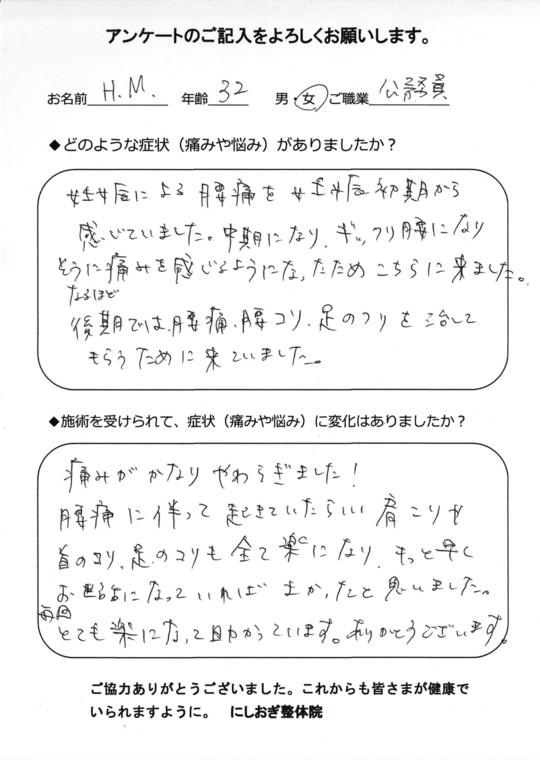 アンケートのご記入をよろしくお願いします。
お名前 H.M. 年齢 32 男・女 ご職業 公務員
◆どのような症状（痛みや悩み）がありましたか？
妊娠による腰痛を妊娠初期から
感じていました。中期になり、ギックリ腰になり
そうに痛みを感じるようになったためこちらに来ました。
なるほど
後期では、腰痛、腰コリ、足のつりを治して
もらうために来ていました。
◆施術を受けられて、症状（痛みや悩み）に変化はありましたか？
痛みがかなりやわらぎました！
腰痛に伴って起きていたらしい肩こりや
首のコリ、足のコリも全て楽になり、もっと早く
お世話になっていればよかったと思いました。
毎回
とても楽になって助かっています。ありがとうございます。
ご協力ありがとうございました。これからも皆さまが健康で
いられますように。 にしおぎ整体院